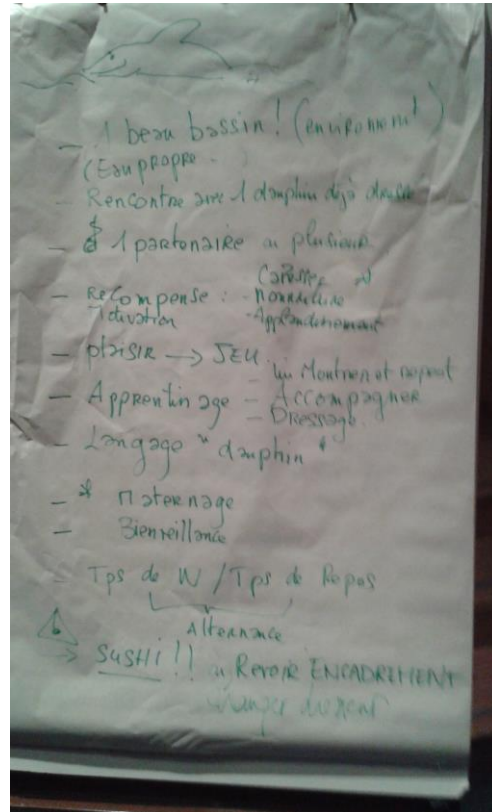 - 1 beau bassin ! (environment)
(Eau propre.
- Rencontre avec 1 dauphin déjà dressé
- 1 partenaire ou plusieurs
- Récompense : Caresses
Motivation - Nourriture
- Applaudissement
- plaisir → JEU
- lui Montrer et répéter
- Apprentissage - Accompagner
- Dressage
- Langage "dauphin"
- * Maternage
- Bienveillance
- Tps de W / Tps de Repos
Alternance
→ SUSHI !! ou Revoir ENCADREMENT